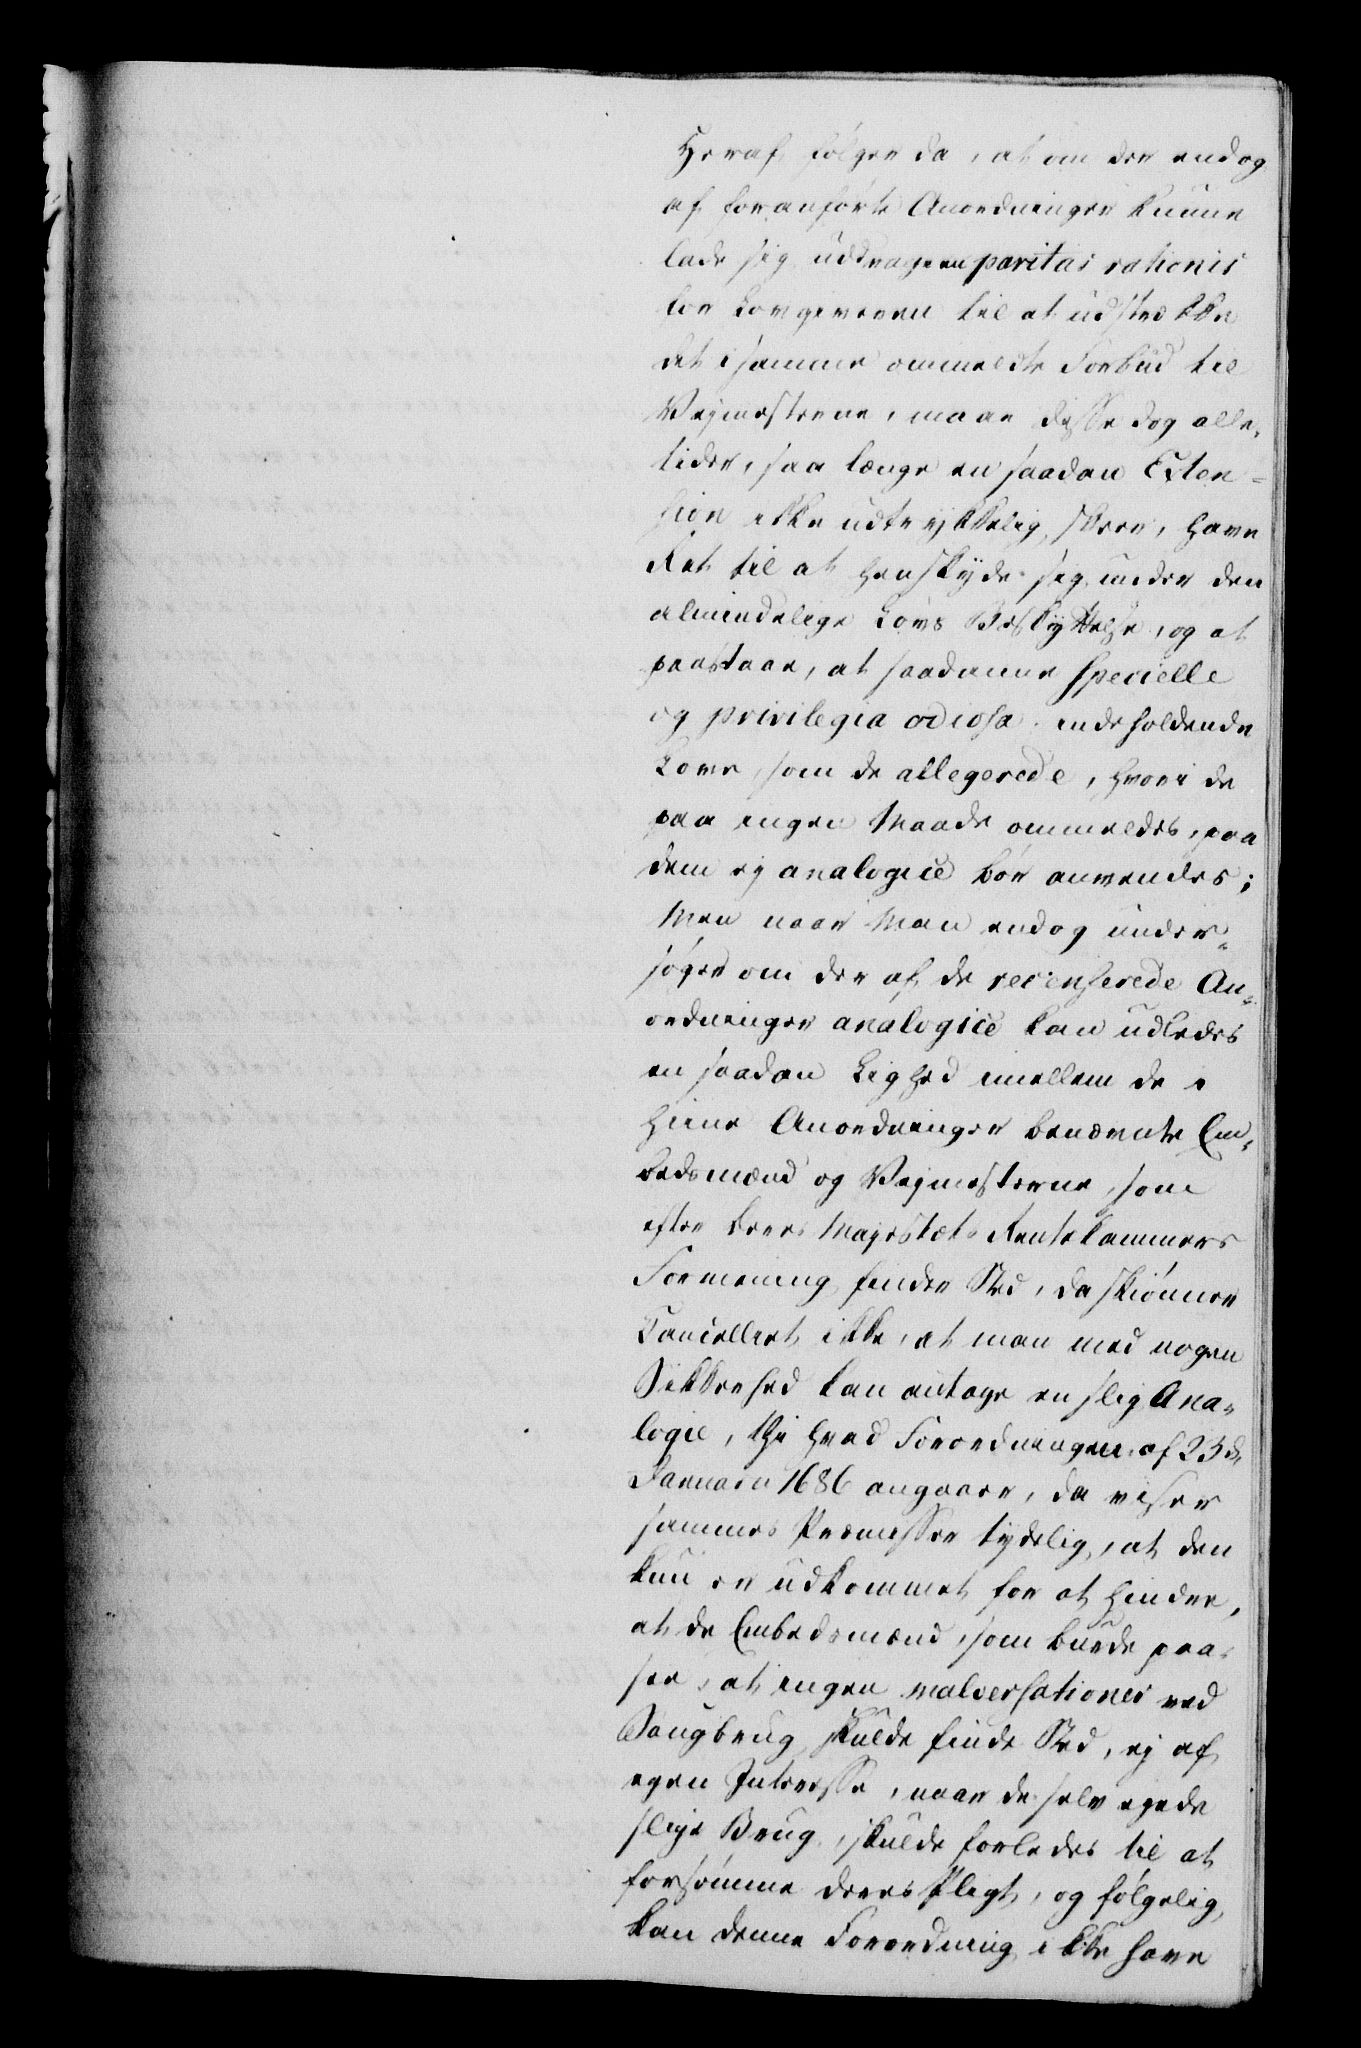 Heraf følger da, at om der endog
af foranførte Anordninger kunne
lade sig uddrage en paritas rationis
for Lovgiveren til at udstrække
det i samme ommeldte Forbud til
Vejmesterne, maae disse dog alle„
tider, saa længe en saadan Exten„
sion ikke udtrykkelig skeer, have
Ret til at henskyde sig under den
almindelige Lovs Beskyttelse, og at
paastaae, at saadanne specielle
og privilegia odiosa indeholdende
Love, som de allegerede, hvori de
paa ingen Maade ommeldes, paa
dem ej analogicè bør anvendes;
Men naar Man endog under„
søger om der af de recenserede An„
ordninger analogicè kan udledes
en saadan Lighed imellem de i
hine Anordninger benævnte Em„
bedsmænd og Vejmesterne, som
efter Deres Majestæts Rentekammers
Formening finder Sted, da skiønner
Cancelliet ikke, at man med nogen
Sikkerhed kan antage en slig Ana„
logie, thi hvad Forordningen af 23de
Januarii 1686 angaaer, da viser
sammes Præmisser tydelig, at den
kun er udkommet for at hindre,
at de Embedsmænd, som burde paa„
see, at ingen malversationer ved
Saugbrug skulde finde Sted, ej af
egen Interesse, naar de selv eyede
slige Brug, skulde forledes til at
forsømme deres Pligt, og følgelig
kan denne Forordning ikke have